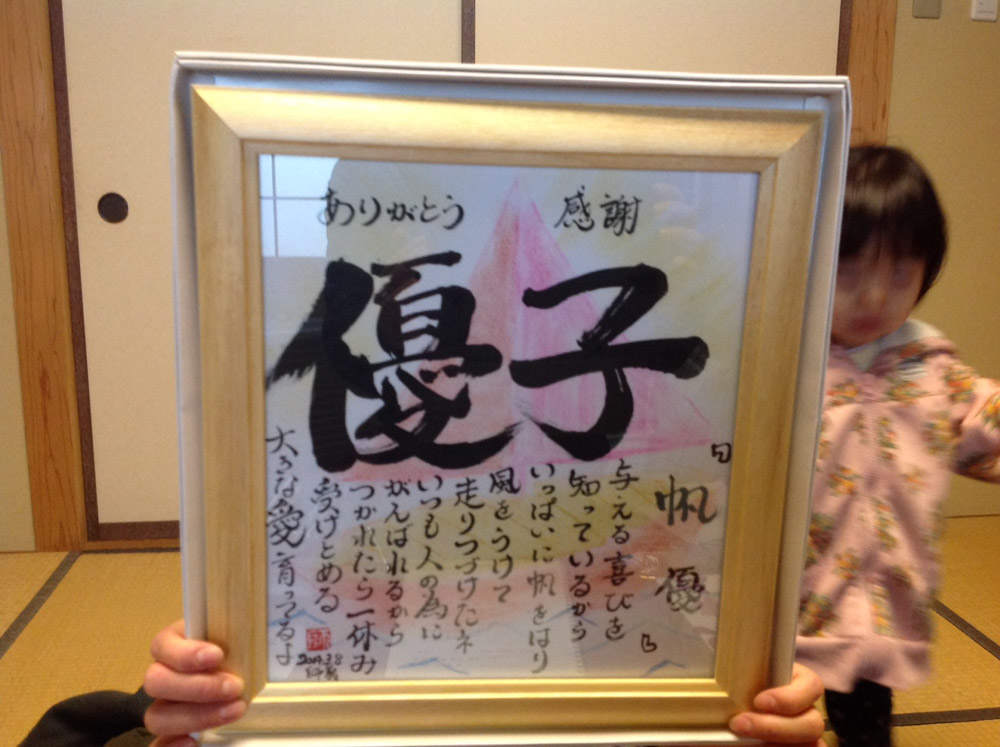 ありがとう 感謝
優子
「帆優」
与える喜びを
知っているから
いっぱいに帆をはり
風をうけて
走りつづけたネ
いつも人の為に
がんばれるから
つかれたら一休み
受けとめる
大きな愛育ってるよ
2014.3.8